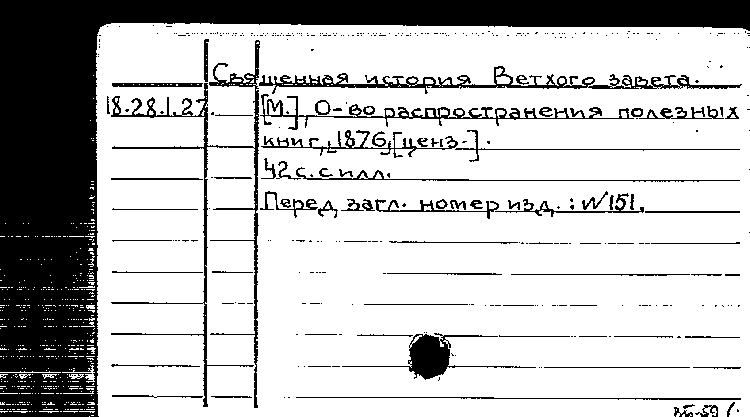 Священная история Ветхого завета.
18.28.1.27. [М.], О-во распространения полезных
книг, 1876, [ценз.].
42 с. с илл.
Перед загл. номер изд.: № 151.